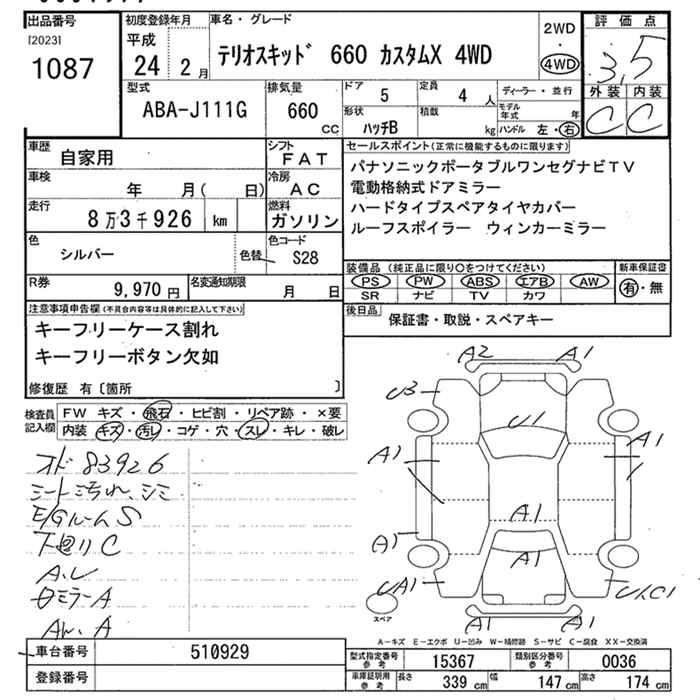 出品番号
[2023]
1087
初度登録年月
平成
24 2 月
車名・グレード
テリオスキッド 660 カスタムX 4WD
2WD
・
4WD
評価点
3.5
外装 内装
C C
型式
ABA-J111G
排気量
660
cc
ドア
5
定員
4 人
形状
ハッチB
積載
kg
ディーラー・並行
モデル年式 年
ハンドル 左・右
車歴
自家用
シフト
FAT
車検
年 月( 日)
冷房
AC
走行
8万3千926 km
燃料
ガソリン
色
シルバー
色替
色コード
S28
R券
9,970 円
名変通知期限
月 日
セールスポイント(正常に機能するものに限ります)
パナソニックポータブルワンセグナビTV
電動格納式ドアミラー
ハードタイプスペアタイヤカバー
ルーフスポイラー ウィンカーミラー
装備品(純正品に限り○をつけてください)
PS PW ABS エアB AW
SR ナビ TV カワ
新車保証書
有・無
後日品
保証書・取説・スペアキー
注意事項申告欄(不具合内容等は具体的に記入して下さい)
キーフリーケース割れ
キーフリーボタン欠如
修復歴 有〔箇所 〕
検査員記入欄
FW キズ・飛石・ヒビ割・リペア跡・×要
内装 キズ・汚レ・コゲ・穴・スレ・キレ・破レ
オド 83926
シート汚れ、シミ
E/GルームS
下廻りC
A.L
ミラーA
A
A2 A1
U3
U1
A1
A1
A1
A1
A1
A1
UA1
U1,C1
A1
スペア
A-キズ E-エクボ U-凹み W-補修跡 S-サビ C-腐食 XX-交換済
車台番号
510929
登録番号
型式指定番号
参考
15367
類別区分番号
参考
0036
車庫証明用
参考
長さ 339 cm 幅 147 cm 高さ 174 cm